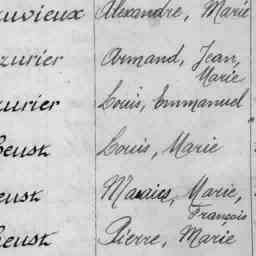 uvieux Alexandre, Marie
zurier Armand, Jean,
Marie
urier Louis, Emmanuel
Louis, Marie
Marie,
François
Pierre, Marie